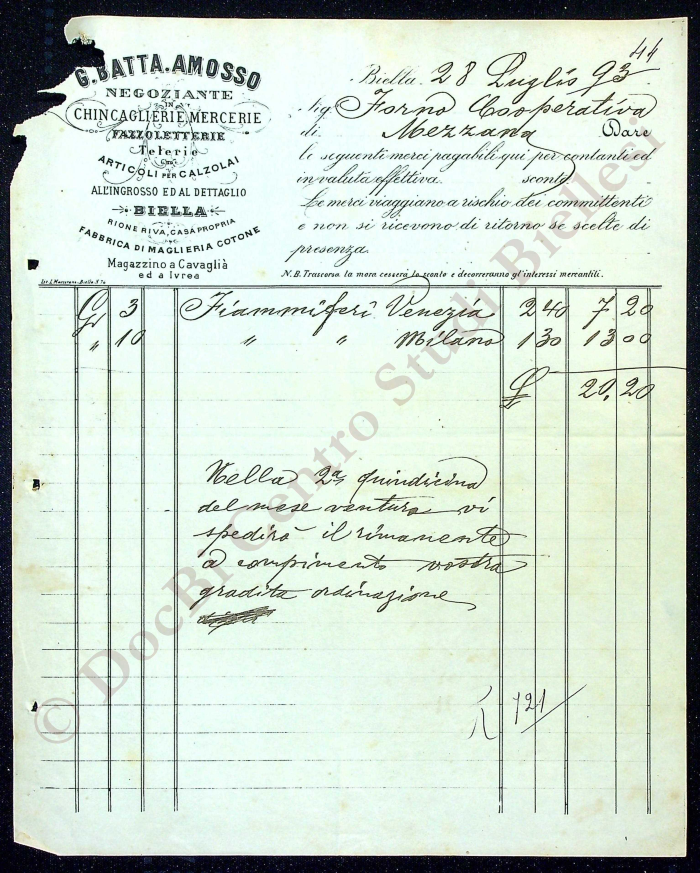 44
G. BATTA. AMOSSO
NEGOZIANTE
IN
CHINCAGLIERIE MERCERIE
FAZZOLETTERIE
Telerie
ARTICOLI PER CALZOLAI
ALL'INGROSSO ED AL DETTAGLIO
BIELLA
RIONE RIVA, CASA PROPRIA
FABBRICA DI MAGLIERIA COTONE
Magazzino a Cavaglià
ed a Ivrea
Biella 28 Luglio 93
Sig. Forno Cooperativa
di Mezzana Dare
le seguenti merci pagabili qui per contanti ed
in valuta effettiva. sconto
Le merci viaggiano a rischio dei committenti
e non si ricevono di ritorno se scelte di
presenza.
N. B. Trascorsa la mora cesserà lo sconto e decorreranno gl'interessi mercantili.
3 Fiammiferi Venezia 2 40 7 20
" 10 " " Milano 1 30 13 00
£ 20,20
Nella 2a quindicina
del mese venturo vi
spedirò il rimanente
a compimento vostra
gradita ordinazione
121
© DocBi Centro Studi Biellesi